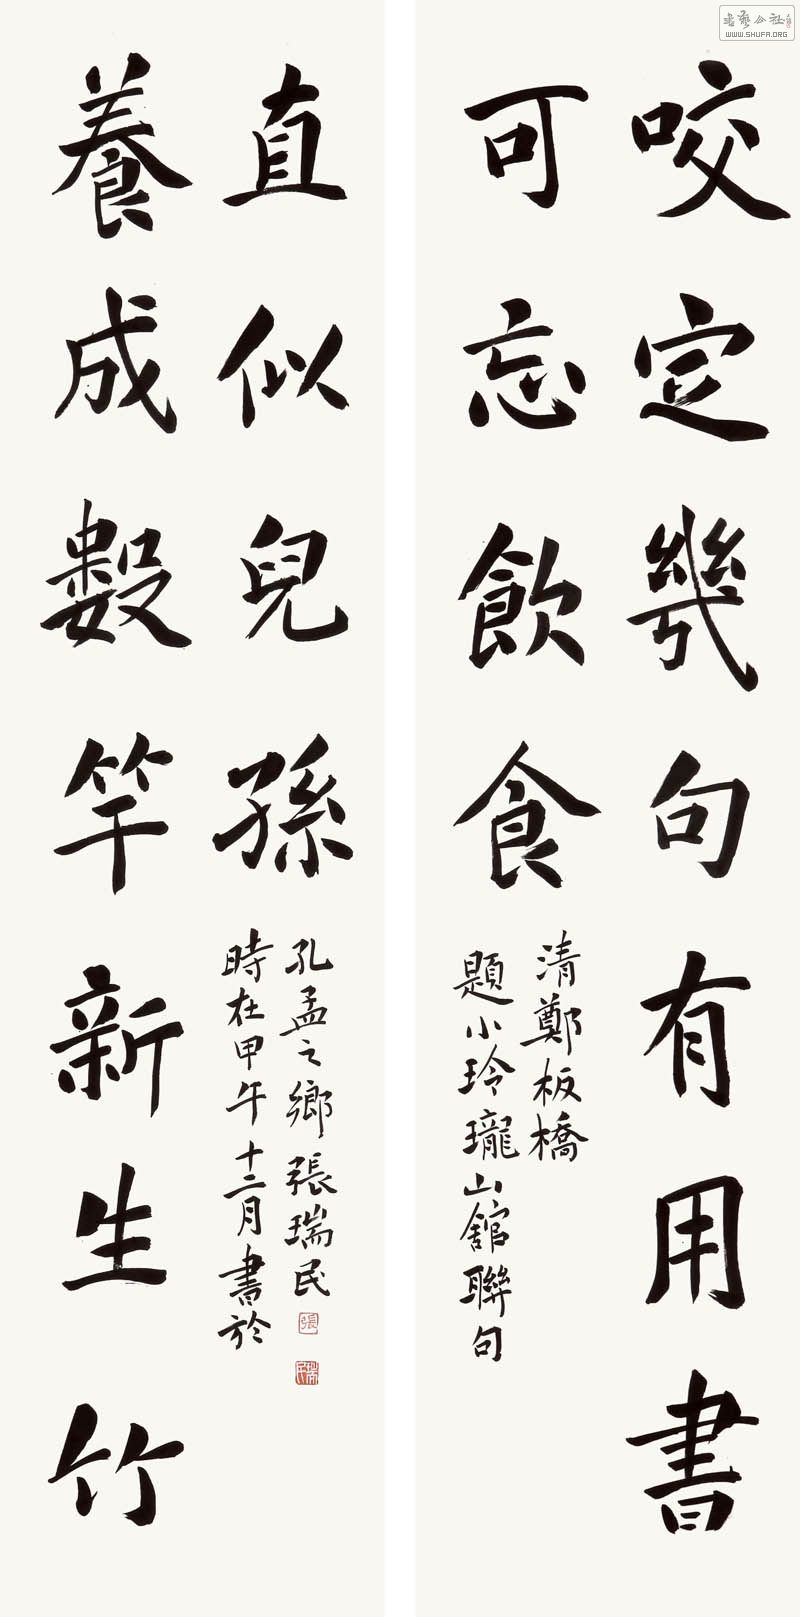 咬定幾句有用書
可忘飲食
清鄭板橋
題小玲瓏山舘聯句
養成數竿新生竹
直似兒孫
時在甲午十二月書於
孔孟之鄉張瑞民
張
瑞民
書藝公社
WWW.SHUFA.ORG